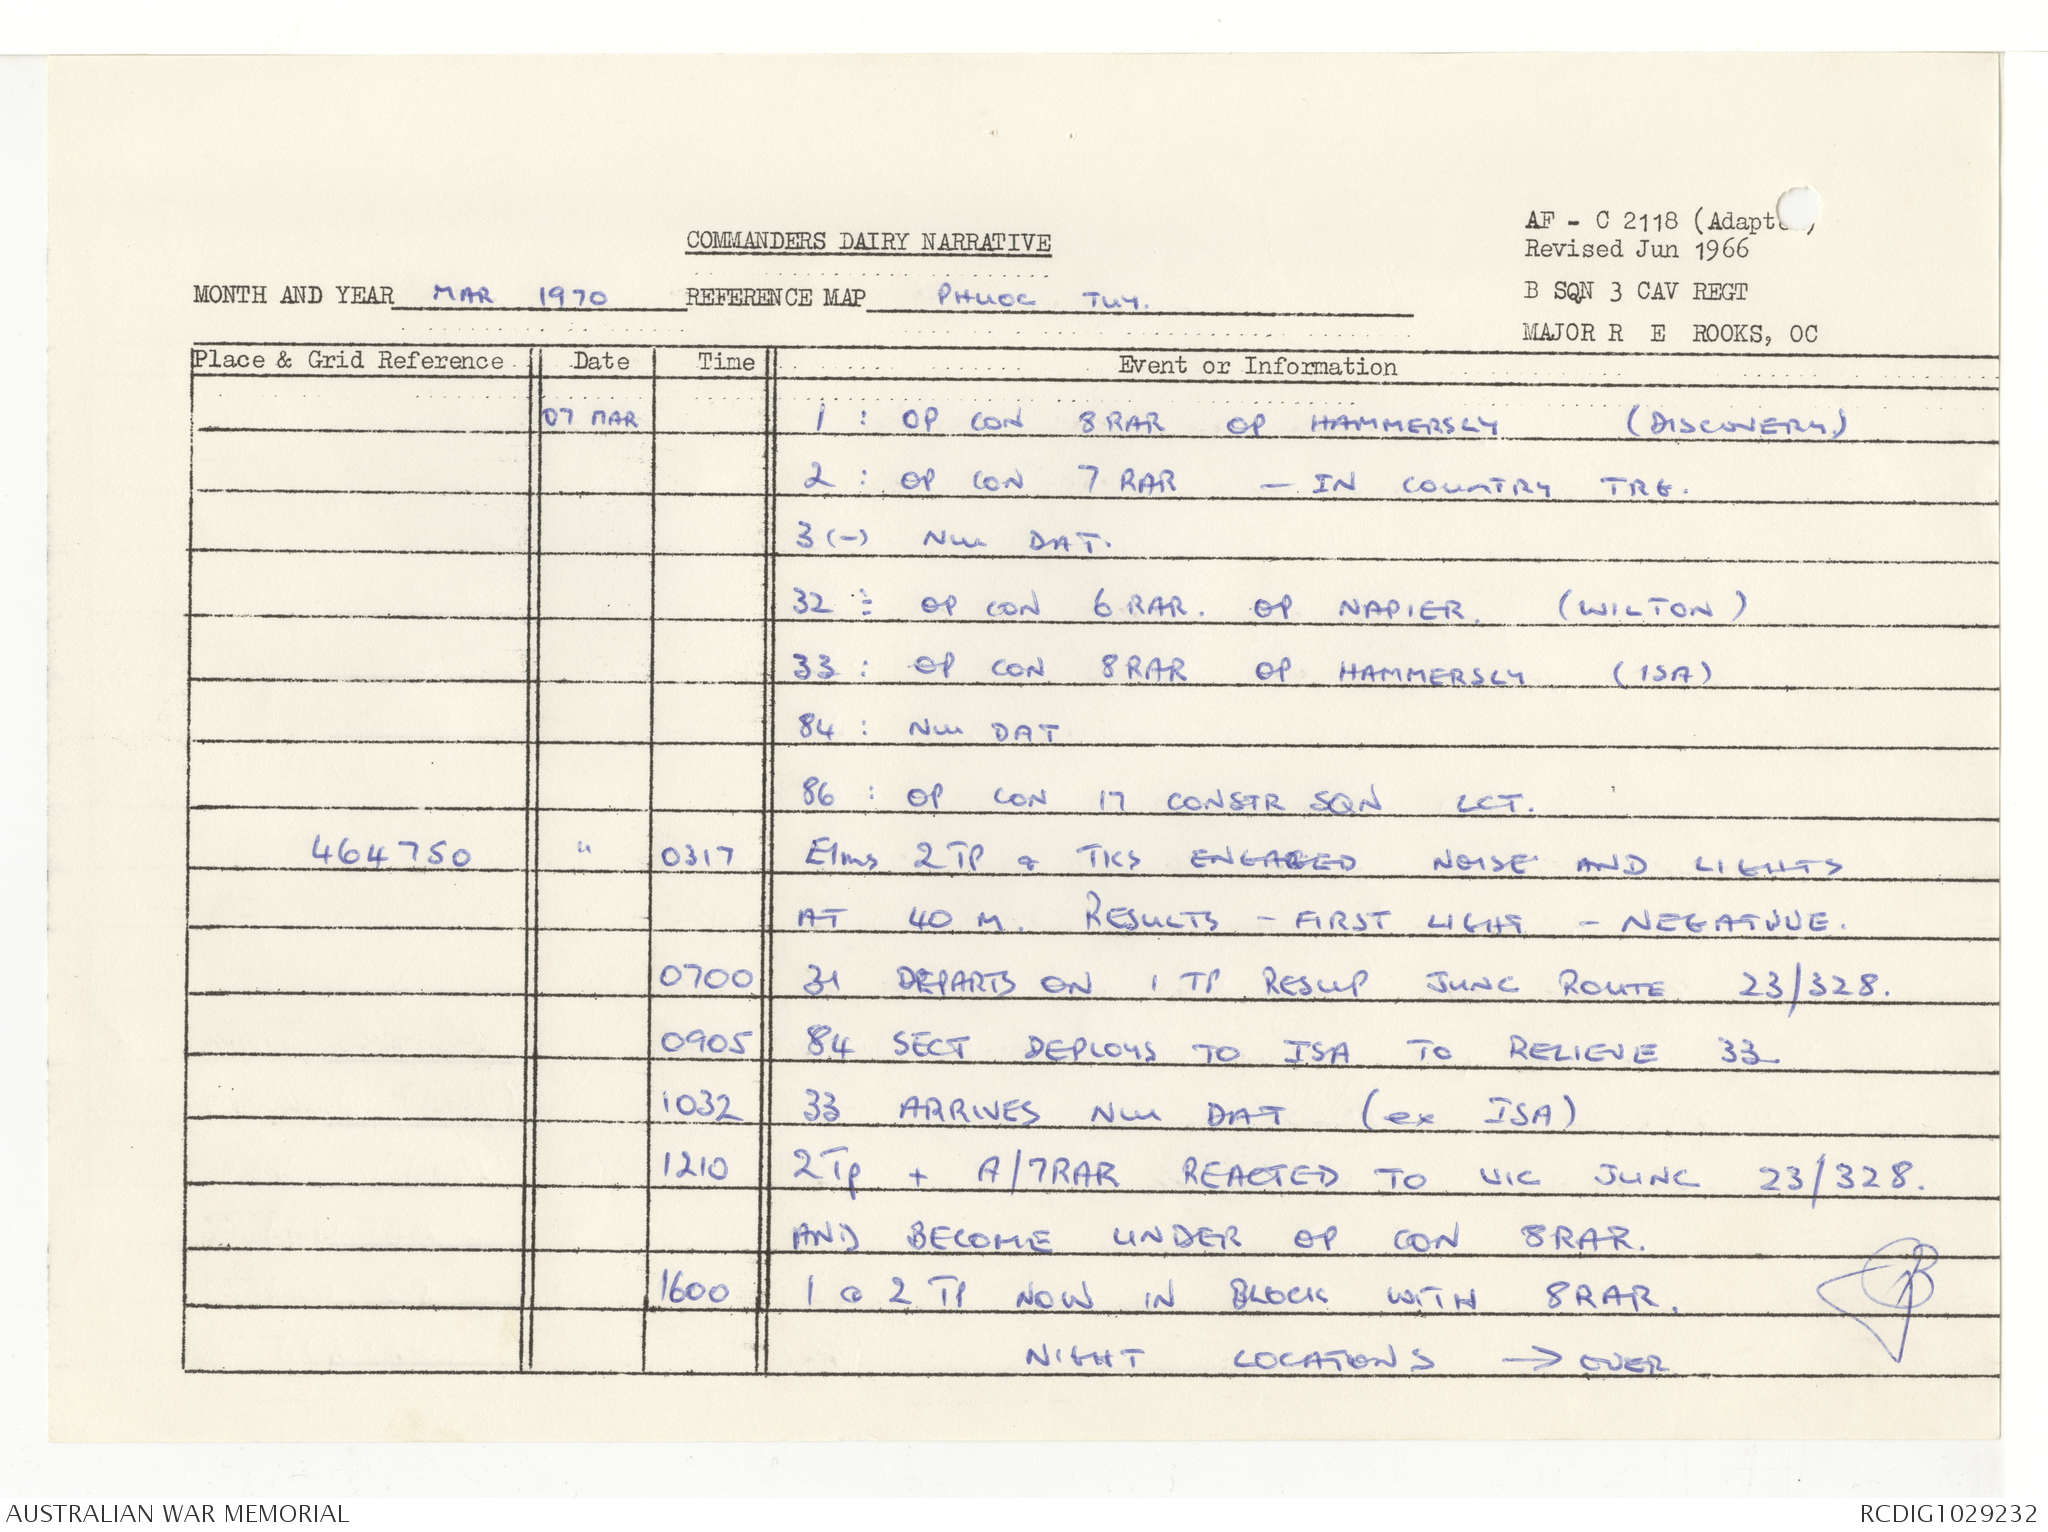 AF - C 2118 (Adapt
COMMANDERS DAIRY NARRATIVE
Revised Jun 1966
MONTH AND YEAR MAR 1970 REFERENCE MAP PHUOC TUY.
B SQN 3 CAV REGT
MAJOR R E ROOKS, OC
Place & Grid Reference Date Time Event or Information
07 MAR 1 : OP CON 8RAR OP HAMMERSLY (DISCOVERY)
2 : OP CON 7 RAR - IN COUNTRY TRG.
3 (-) NUI DAT.
32 : OP CON 6 RAR. OP NAPIER. (WILTON)
33 : OP CON 8RAR OP HAMMERSLY (ISA)
84 : NUI DAT
86 : OP CON 17 CONSTR SQN LCT.
464750 " 0317 Elms 2 TP & TKS ENGAGED NOISE AND LIGHTS
AT 40 M. RESULTS - FIRST LIGHT - NEGATIVE.
0700 31 DEPARTS ON 1 TP RESUP JUNC ROUTE 23/328.
0905 84 SECT DEPLOYS TO ISA TO RELIEVE 33
1032 33 ARRIVES NUI DAT (ex ISA)
1210 2 Tp + A/7RAR REACTED TO VIC JUNC 23/328.
AND BECOME UNDER OP CON 8RAR.
1600 1 & 2 TP NOW IN BLOCK WITH 8RAR.
NIGHT LOCATIONS → OVER
AUSTRALIAN WAR MEMORIAL
RCDIG1029232